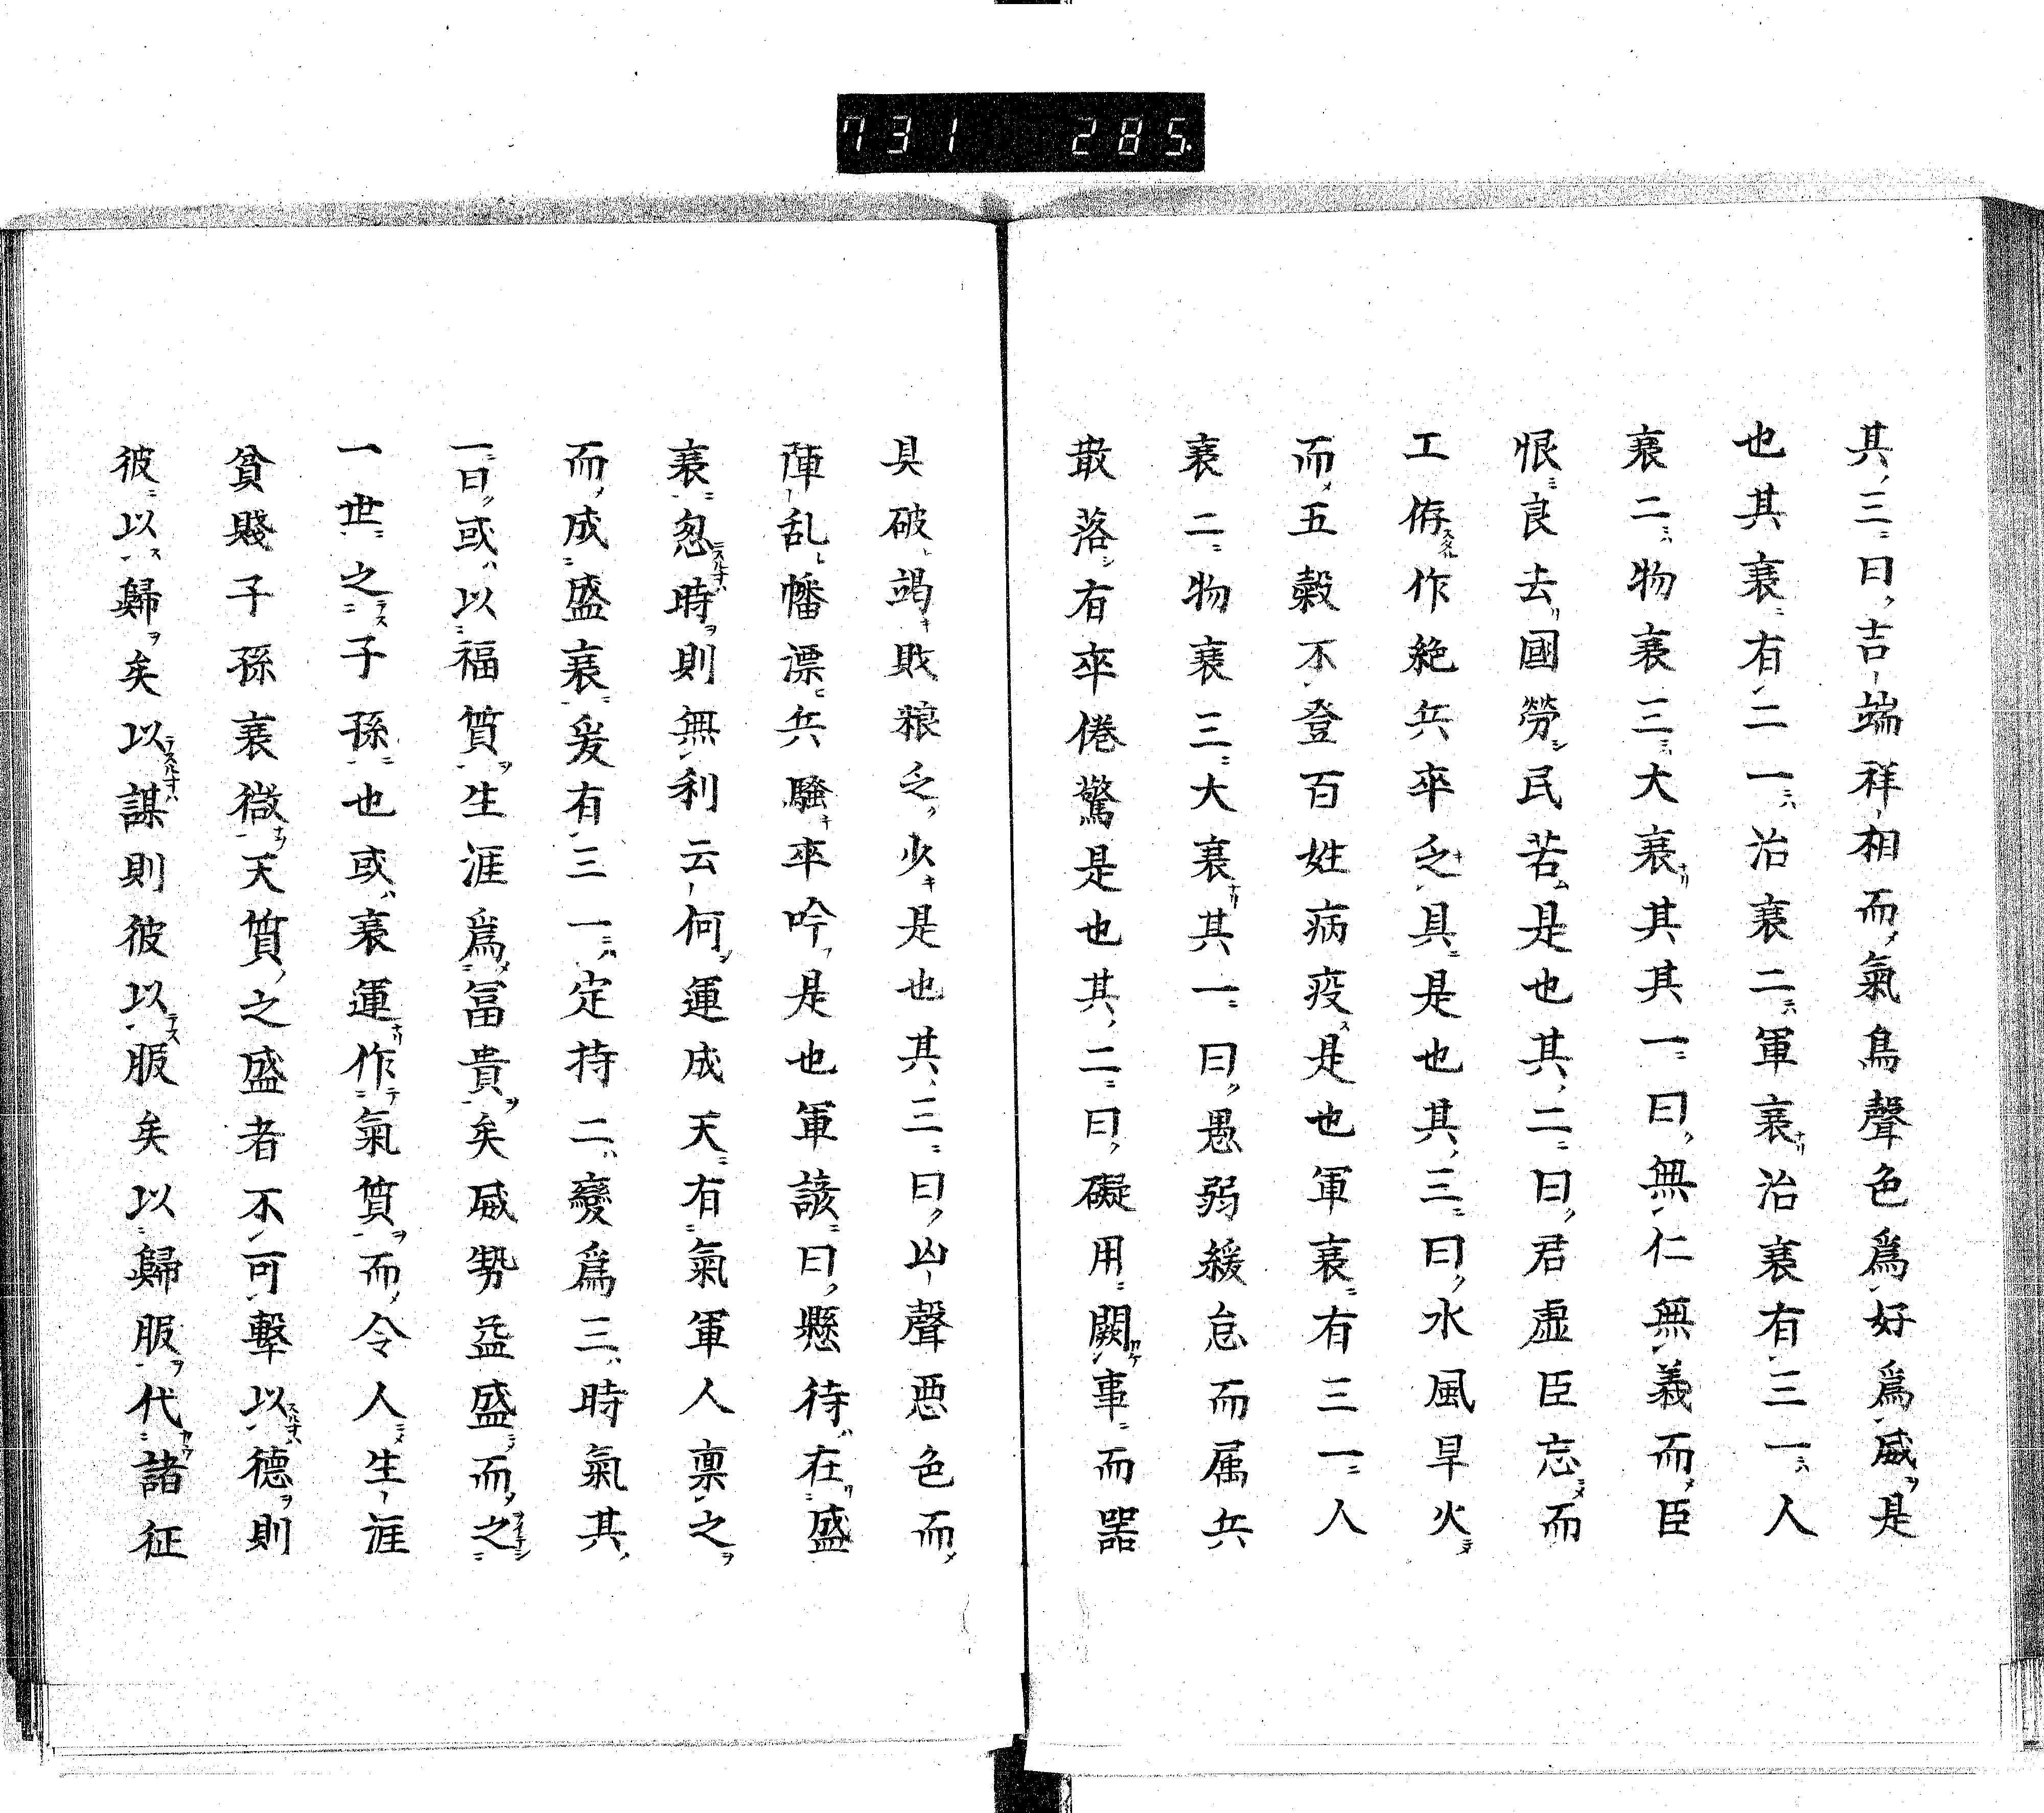 731 285.
其三曰吉端祥相而氣鳥聲色爲好爲威是
也其衰有二一治衰二軍衰治衰有三一人
衰二物衰三大衰其其一曰無仁無義而臣
恨良去國勞民苦是也其二曰君虚臣忘而
工侟作絶兵卒乏具是也其三曰水風旱火
而五穀不登百姓病疫是也軍衰有三一人
衰二物衰三大衰其一曰愚弱緩怠而属兵
散落有卒倦驚是也其二曰礙用闕事而器
具破竭敗粮乏少是也其三曰凶聲悪色而
陣乱幡漂兵騒卒吟是也軍該曰懸待在盛
衰忽時則無利云何運成天有氣軍人稟之
而成盛衰爰有三一定持二變爲三時氣其
一曰或以福質生涯爲冨貴矣威勢益盛而之
一世之子孫也或衰運作氣質而令人生涯
貧賤子孫衰微天質之盛者不可擊以德則
彼以歸矣以謀則彼以服矣以歸服代諸征